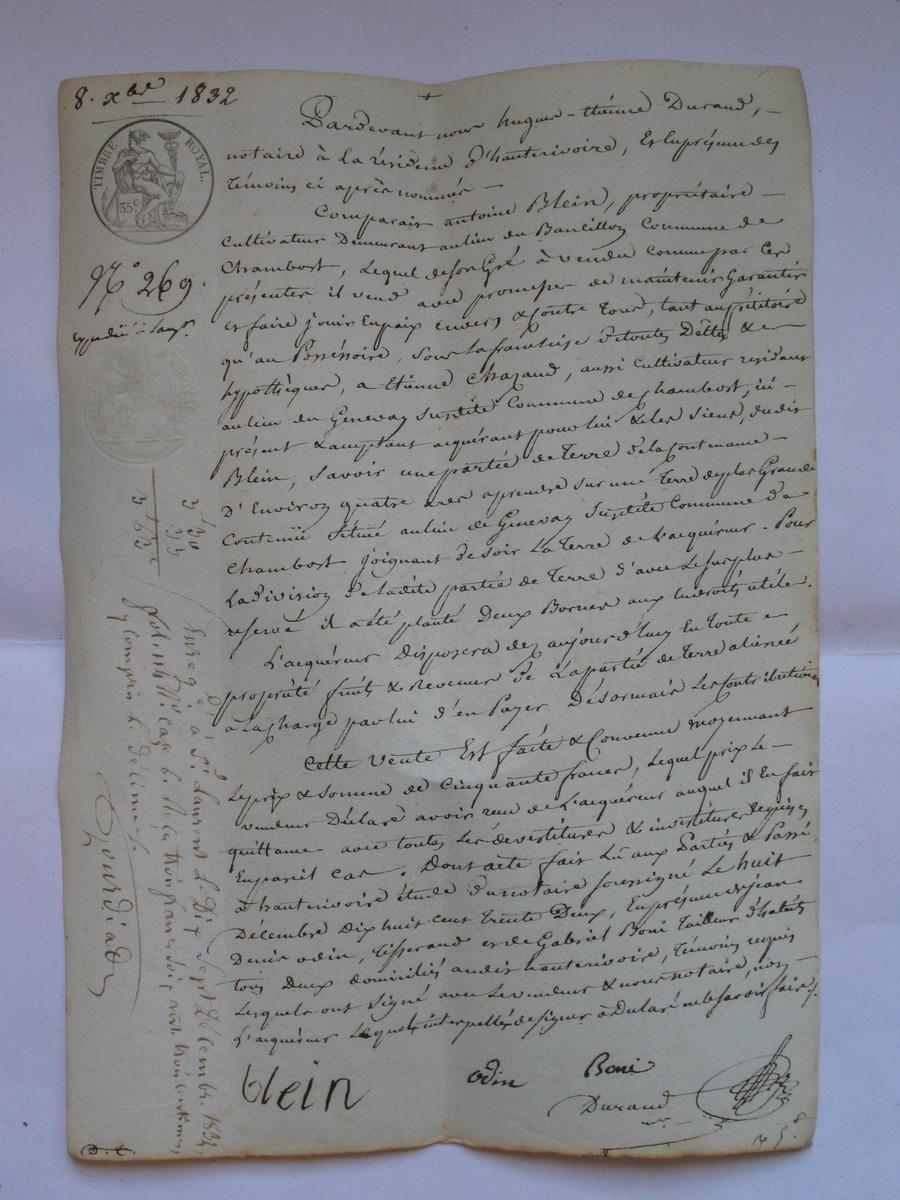 8. xbre 1832
TIMBRE ROYAL.
35 c
No 269.
Pardevant nous hugues-étienne Durand,
notaire à la résidence d'hauterivoire, Et En présence des
témoins ci après nommés —
Comparait antoine Blein, propriétaire —
Cultivateur Demeurant au lieu du Commune de
Chambost, Lequel de son Gré à vendu comme par Ces
présentes il vend avec promesse de maintenir Garantir
et faire jouir En paix envers & contre Tous, tant au pétitoire
qu'au Possessoire, sous la franchise de toutes Dettes &
hypothèques, a Etienne Chazaud, aussi Cultivateur residant
au lieu du Genevay Susdite Commune de Chambost, ici —
présent & acceptant acquérant pour lui & les siens, dudit
Blein, Savoir une partie de Terre de la Contenance —
D'Environ quatre ares aprendre sur une Terre de plus Grande
Contenue Située au lieu de Genevay Susdite Commune de
Chambost joignant de soir La Terre de L'acquéreur. Pour
La division de ladite partie de Terre d'avec Le surplus —
reservé il a été planté Deux Bornes aux Endroits utiles.
L'acquéreur Disposera dez aujourd'huy En Toute
propriété fruits & Revenus de La partie de Terre alienée
a La charge par lui d'en Payer Désormais Les Contributions
Cette Vente Est faite & Convenue moyennant
Le prix & somme de Cinquante francs, Lequel prix Le —
vendeur Déclare avoir reçu de L'acquéreur auquel il En fait
quittance avec toutes Les devestitures & investitures requises
En pareil Cas. Dont acte fait Lû aux Parties & Passé
à hauterivoire étude du notaire soussigné Le huit
Décembre Dix huit Cent Trente Deux, En présence de jean
Denis odin, Tisserand et de Gabriel Boni Tailleur d'habits
tous Deux domiciliés audit hauterivoire, Témoins requis
Lesquels ont signé avec Le vendeur & nous notaire, non
L'acquéreur Lequel interpellé de signer à Déclaré ne le savoir faire
blein
odin
Boni
Durand
Enregé à St Laurent le Dix Sept Décembre 1832,
fol. Vo case 6. Reçu trois francs soixante trois centimes
y compris le décime.
3 30
33
3 63 c
D. C.